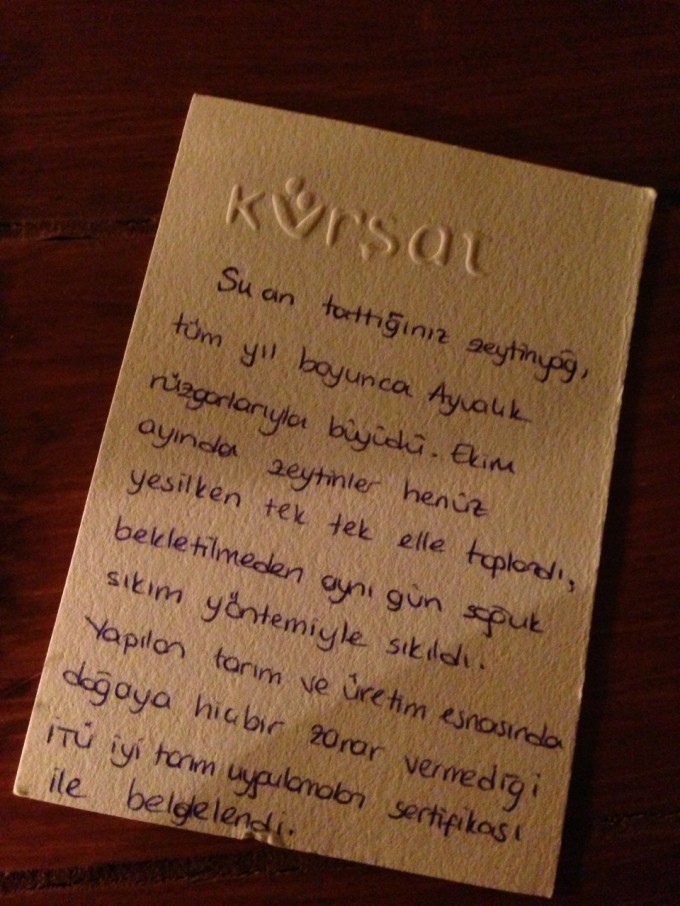 kürşat
Şu an tattığınız zeytinyağı,
tüm yıl boyunca Ayvalık
rüzgarlarıyla büyüdü. Ekim
ayında zeytinler henüz
yesilken tek tek elle toplandı,
bekletilmeden aynı gün soğuk
sıkım yöntemiyle sıkıldı.
Yapılan tarım ve üretim esnasında
doğaya hiçbir zarar vermediği
İTÜ iyi tarım uygulamaları sertifikası
ile belgelendi.